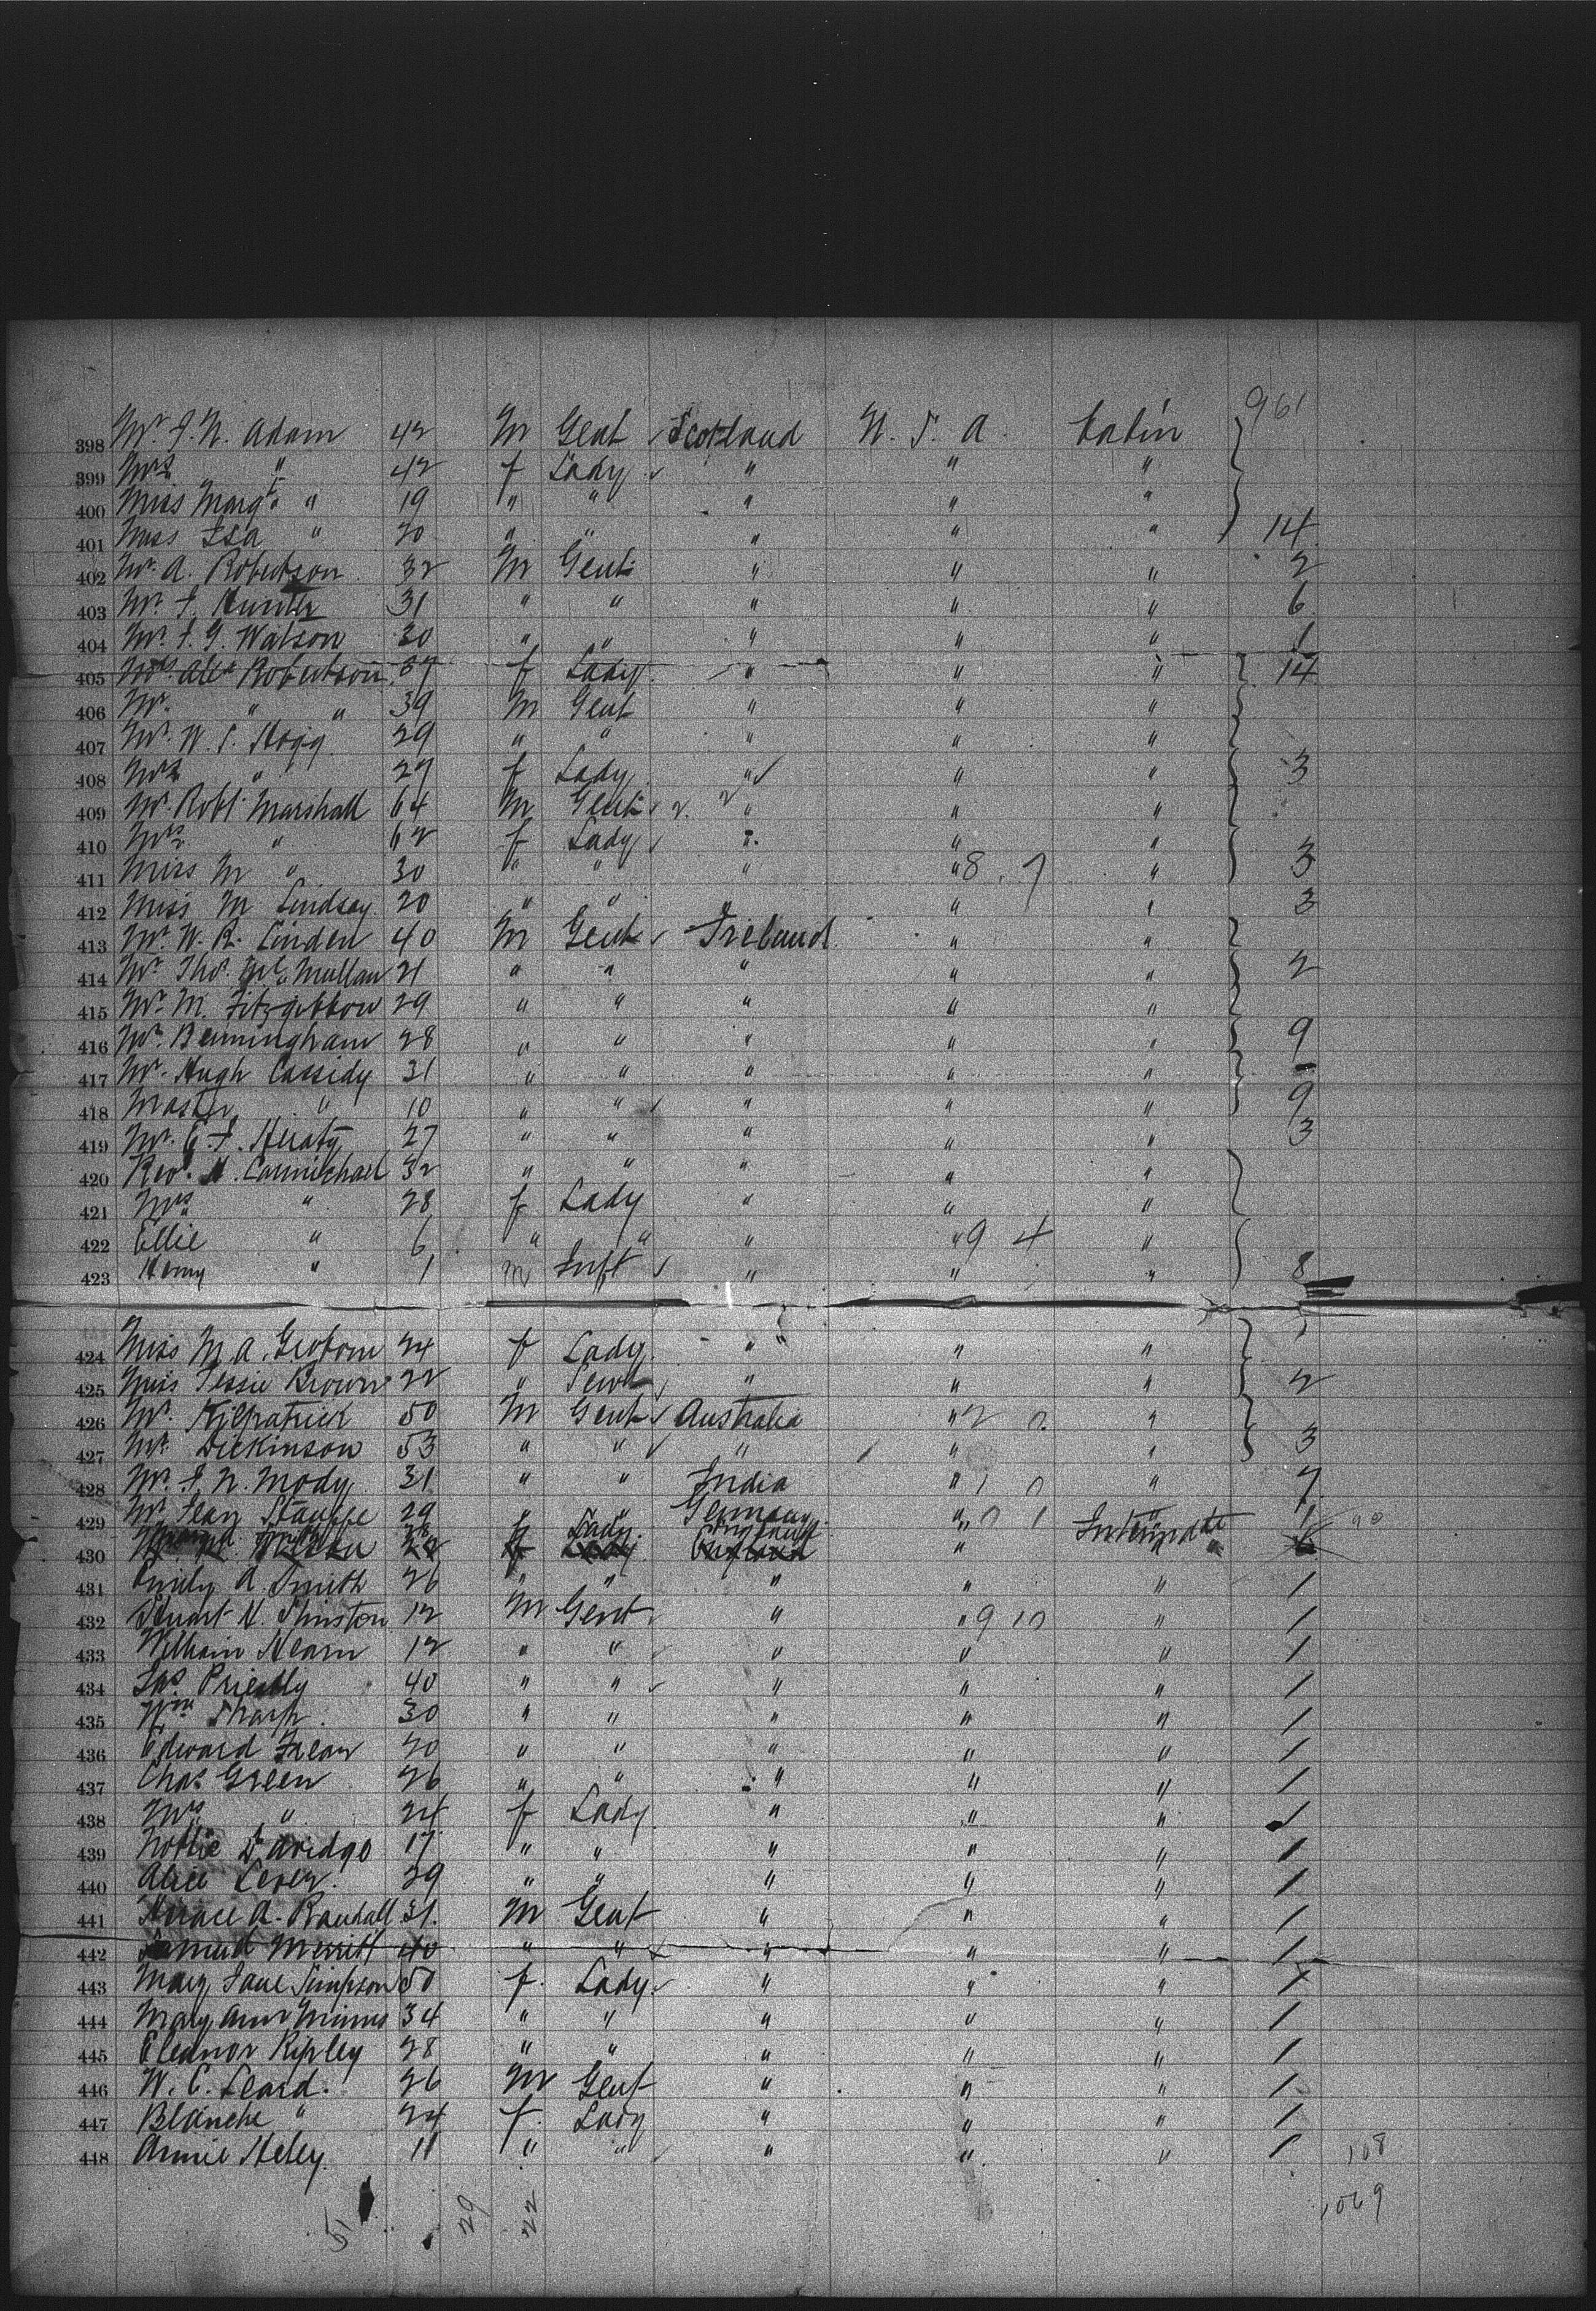 961
398 Mr. J. N. Adam 42 M Gent Scotland U. S. A. Cabin
399 Mrs " 42 f Lady " " "
400 Miss Margt " 19 " " " " "
401 Miss Isa " 20 " " " " " 14
402 Mr. A. Robertson 32 M Gent " " " 2
403 Mr. J. Hunter 31 " " " " " 6
404 Mr. J. G. Watson 30 " " " " " 1
405 Mrs. Alex Robertson 37 f Lady " " " 14
406 Mr. " " 39 M Gent " " "
407 Mr. W. S. Hogg 29 " " " " "
408 Mrs " 27 f Lady " " " 3
409 Mr. Robt Marshall 64 M Gent " " "
410 Mrs " 62 f Lady " " "
411 Miss M " 30 " " " " 8 7 " 3
412 Miss M Lindsay 20 " " " " " 3
413 Mr. W. R. Linden 40 M Gent Ireland " "
414 Mr. Thos. McMullan 21 " " " " " 2
415 Mr. M. Fitzgibbon 29 " " " " "
416 Mr. Bermingham 28 " " " " " 9
417 Mr. Hugh Cassidy 31 " " " " "
418 Master " 10 " " " " " 9
419 Mr. C. J. Heraty 27 " " " " " 3
420 Rev. H. Carmichael 32 " " " " "
421 Mrs " 28 f Lady " " "
422 Ellie " 6 " " " " 9 4 "
423 Henry " 1 m Inft " " " 8
424 Miss M. A. 24 f Lady " " "
425 Miss Jessie Brown 22 " Servt " " " 2
426 Mr. Kilpatrick 50 M Gent Australia " 2 0 "
427 Mr. Dickinson 53 " " " " " 3
428 Mr. J. N. Mody 31 " " India " 1 0 " 7
429 Mr. Jean 29 " " Germany " 0 1 " 1
430 28 f Lady England " Intermdte
431 Emily A. Smith 26 " " " " " 1
432 Stuart H. 12 M Gent " " 9 10 " 1
433 William Hearn 12 " " " " " 1
434 Jas Priestly 40 " " " " " 1
435 Wm Sharp 30 " " " " " 1
436 Edward 20 " " " " " 1
437 Chas Green 26 " " " " " 1
438 Mrs " 24 f Lady " " " 1
439 Nottie 17 " " " " " 1
440 Alice Lever 29 " " " " " 1
441 Horace A. Randall 31 M Gent " " " 1
442 Samuel Merritt 40 " " " " " 1
443 Mary Jane Simpson 50 f Lady " " " 1
444 Mary Ann 34 " " " " " 1
445 Eleanor Ripley 28 " " " " " 1
446 W. C. Leard 26 M Gent " " " 1
447 Blanche " 24 f Lady " " " 1
448 Annie Heley 11 " " " " " 1 108
51 29 22 1069